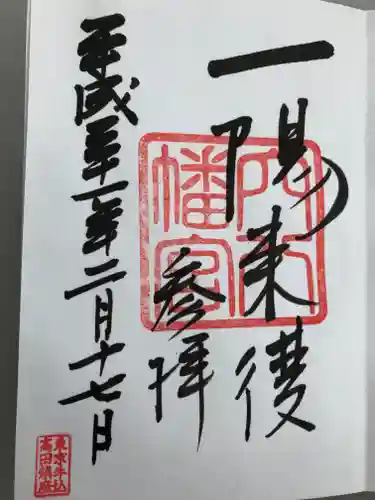 一陽来復
参拝
穴八幡宮
平成三十一年二月十七日
東京牛込
高田鎮座